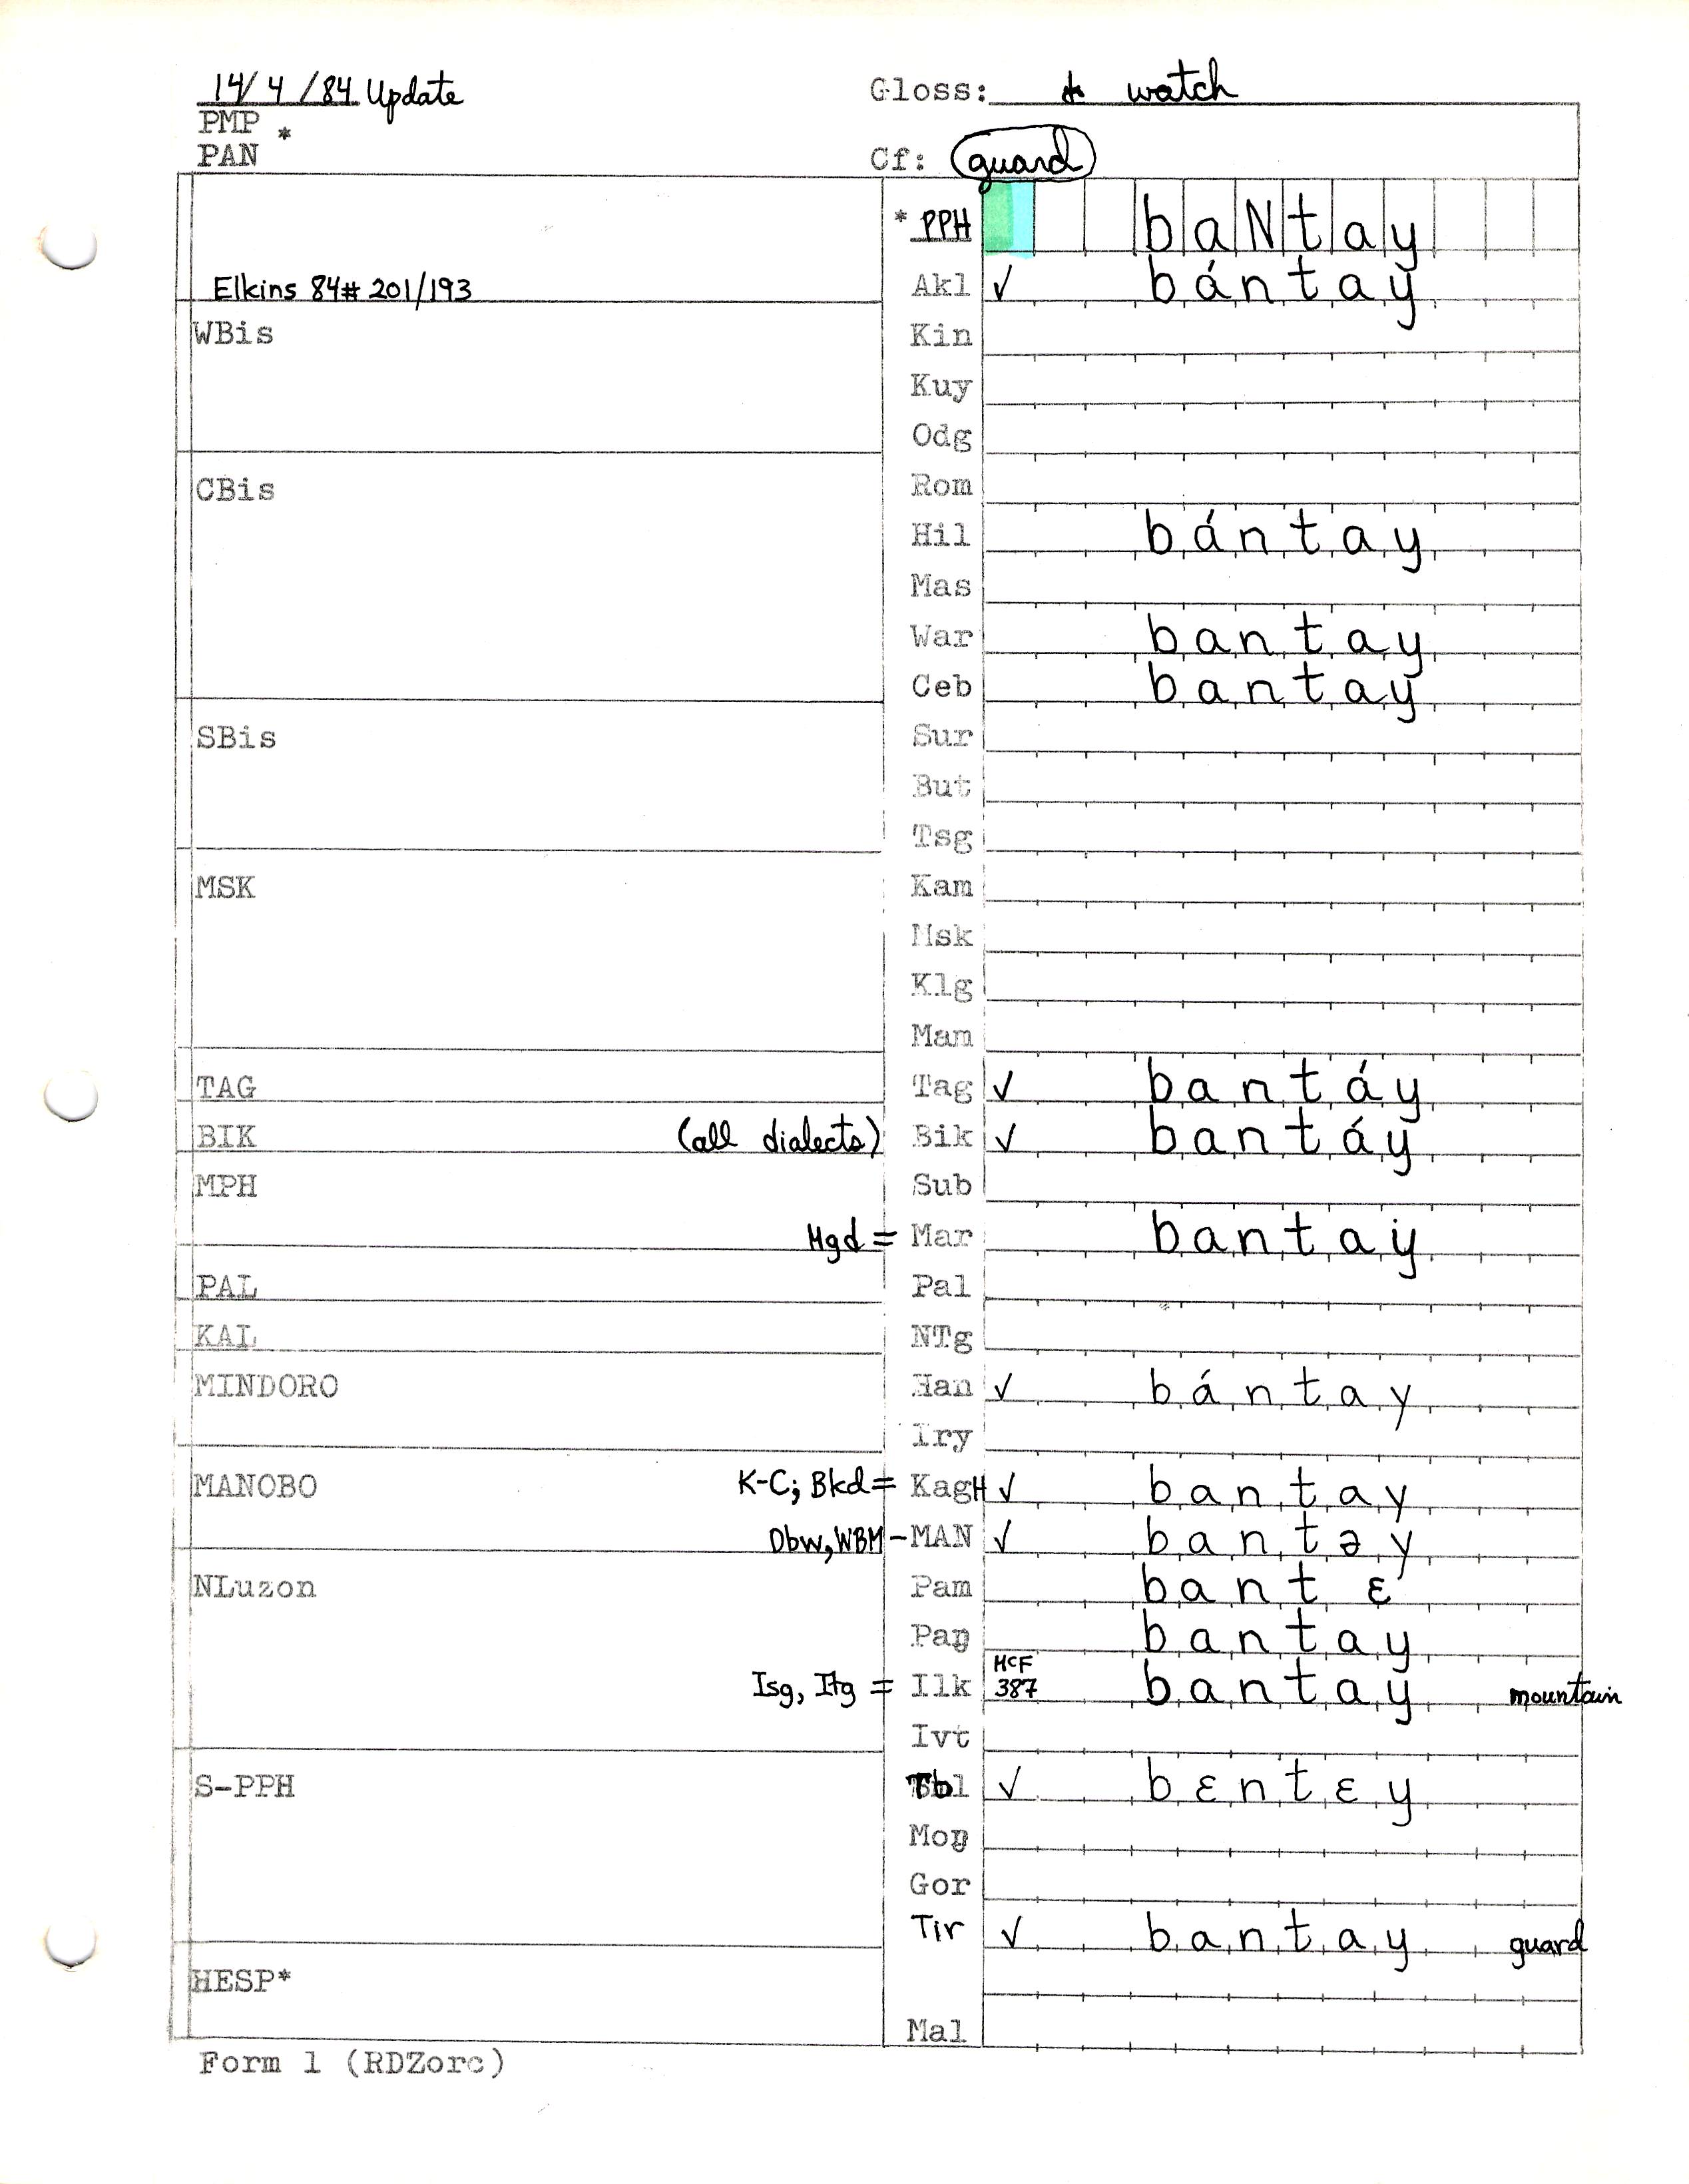 14/4/84 Update Gloss: to watch
PMP *
PAN Cf: guard
* PPH baNtay
Elkins 84# 201/193 Akl ✓ bántay
WBis Kin
Kuy
Odg
CBis Rom
Hil bántay
Mas
War bantay
Ceb bantay
SBis Sur
But
Tsg
MSK Kam
Msk
Klg
Mam
TAG Tag ✓ bantáy
BIK (all dialects) Bik ✓ bantáy
MPH Sub
Mgd = Mar bantaÿ
PAL Pal
KAL NTg
MINDORO Han ✓ bántay
Iry
MANOBO K-C; Bkd = KagH ✓ bantay
Dbw, WBM - MAN ✓ bantəy
NLuzon Pam bantɛ
Paŋ bantay
Isg, Itg = Ilk McF 387 bantay mountain
Ivt
S-PPH Tb ✓ bɛntɛy
Moŋ
Gor
Tir ✓ bantay guard
HESP*
Mal
Form 1 (RDZorc)